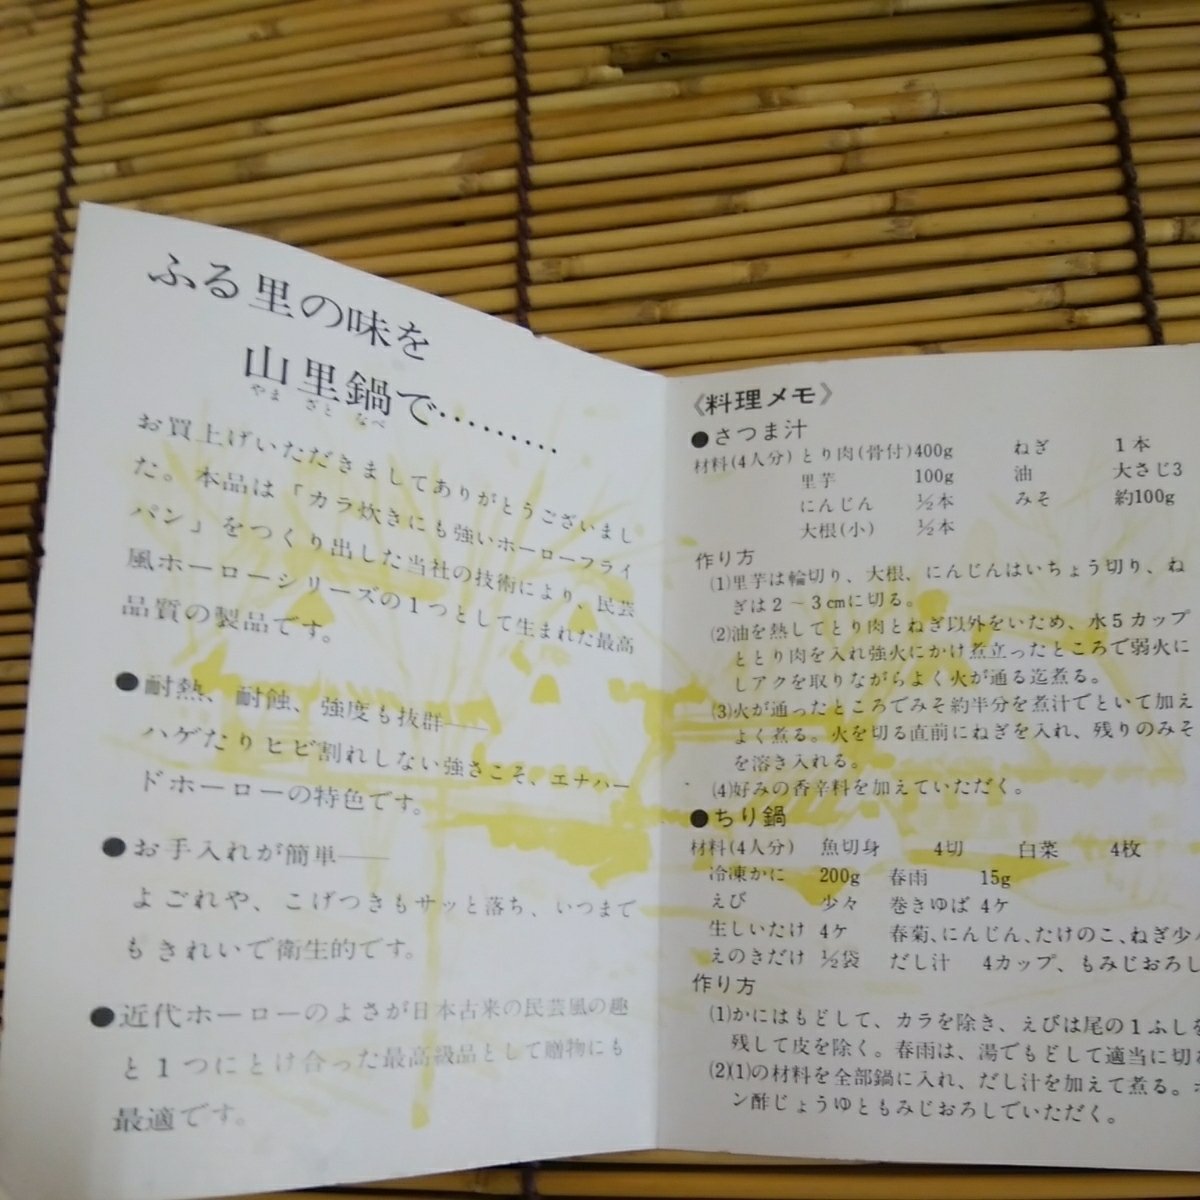 ふる里の味を
山里鍋で………
やまざとなべ
お買上げいただきましてありがとうございまし
た。本品は「カラ炊きにも強いホーローフライ
パン」をつくり出した当社の技術により、民芸
風ホーローシリーズの1つとして生まれた最高
品質の製品です。
●耐熱、耐蝕、強度も抜群——
ハゲたりヒビ割れしない強さこそ、エナハー
ドホーローの特色です。
●お手入れが簡単——
よごれや、こげつきもサッと落ち、いつまで
もきれいで衛生的です。
●近代ホーローのよさが日本古来の民芸風の趣
と1つにとけ合った最高級品として贈物にも
最適です。
《料理メモ》
●さつま汁
材料(4人分) とり肉(骨付)400g ねぎ 1本
里芋 100g 油 大さじ3
にんじん ½本 みそ 約100g
大根(小) ½本
作り方
(1)里芋は輪切り、大根、にんじんはいちょう切り、ね
ぎは2～3㎝に切る。
(2)油を熱してとり肉とねぎ以外をいため、水5カップ
ととり肉を入れ強火にかけ煮立ったところで弱火に
しアクを取りながらよく火が通る迄煮る。
(3)火が通ったところでみそ約半分を煮汁でといて加え
よく煮る。火を切る直前にねぎを入れ、残りのみそ
を溶き入れる。
(4)好みの香辛料を加えていただく。
●ちり鍋
材料(4人分) 魚切身 4切 白菜 4枚
冷凍かに 200g 春雨 15g
えび 少々 巻きゆば 4ケ
生しいたけ 4ケ 春菊、にんじん、たけのこ、ねぎ少
えのきだけ ½袋 だし汁 4カップ、もみじおろし
作り方
(1)かにはもどして、カラを除き、えびは尾の1ふしを
残して皮を除く。春雨は、湯でもどして適当に切
(2)(1)の材料を全部鍋に入れ、だし汁を加えて煮る。
ン酢じょうゆともみじおろしでいただく。